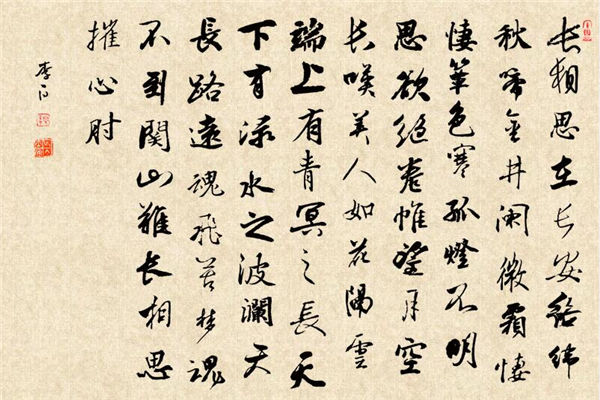 长相思在长安絡緯
秋啼金井阑微霜悽
悽簟色寒孤燈不明
思欲絕卷帷望月空
长嘆美人如花隔雲
端上有青冥之長天
下有渌水之波瀾天
長路遠魂飛苦梦魂
不到関山難長相思
摧心肝
李白